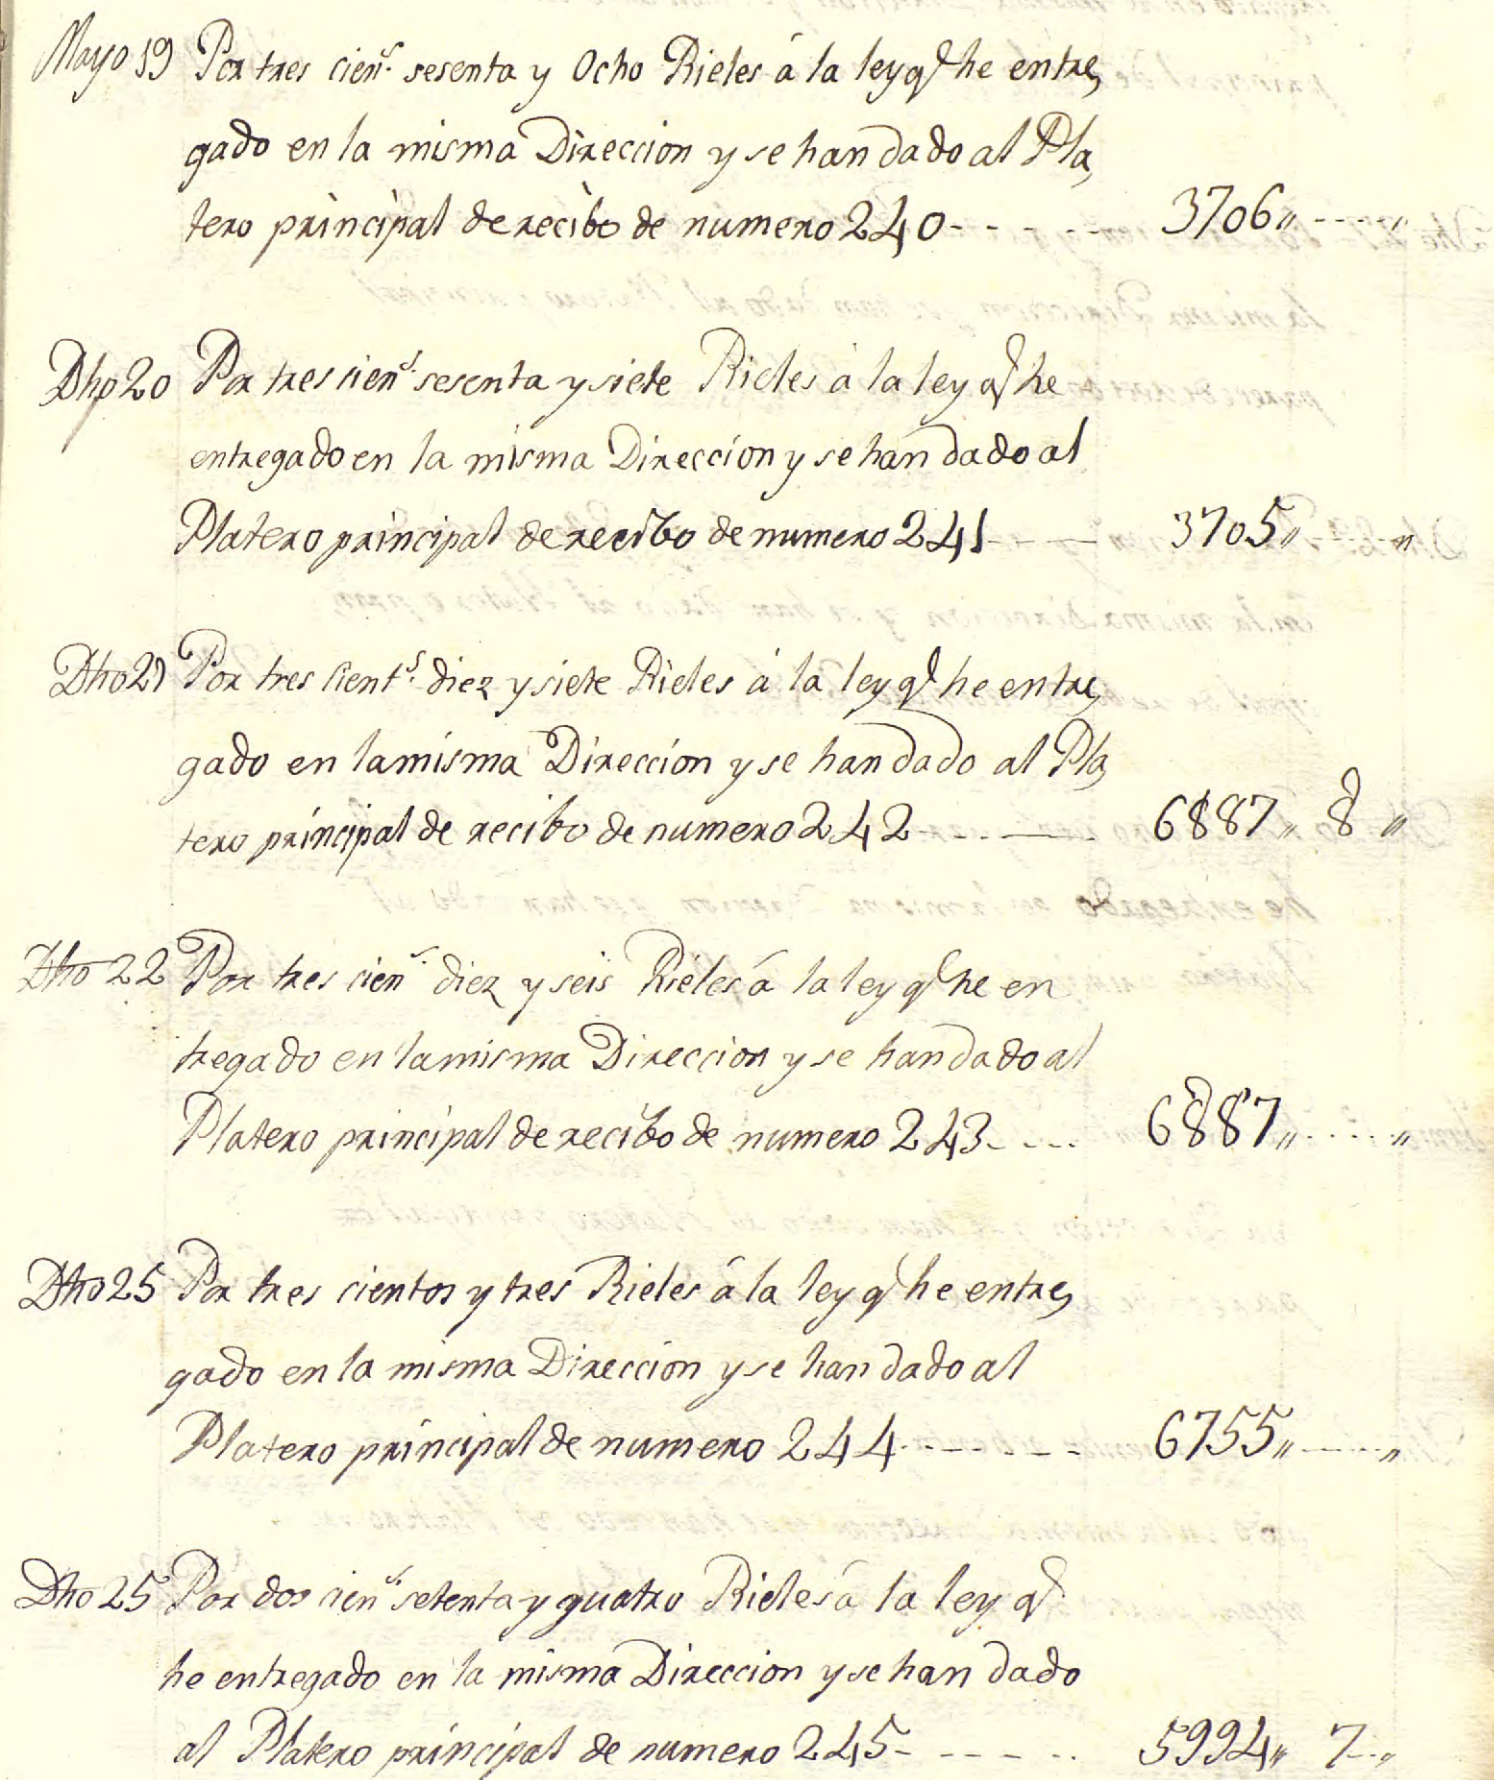 Mayo 19 Por tres cien.s sesenta y Ocho Rieles á la ley q.e he entre,
gado en la misma Direccion y se han dado al Pla,
tero principal de recibo de numero 240 - - - - - 3706,, - - - - ,,
Dho 20 Por tres cien.s sesenta y siete Rieles á la ley q.e he
entregado en la misma Direccion y se han dado al
Platero principal de recibo de numero 241 - - - - 3705,, - - - - ,,
Dho 21 Por tres cient.s diez y siete Rieles á la ley q.e he entre,
gado en la misma Direccion y se han dado al Pla,
tero principal de recibo de numero 242 - - - - 6887,, 8 ,,
Dho 22 Por tres cien.s diez y seis Rieles á la ley q.e he en
tregado en la misma Direccion y se han dado al
Platero principal de recibo de numero 243 - - - - 6887,, - - - - ,,
Dho 25 Por tres cientos y tres Rieles á la ley q.e he entre,
gado en la misma Direccion y se han dado al
Platero principal de numero 244 - - - - - - 6755,, - - - - ,,
Dho 25 Por dos cien.s setenta y quatro Rieles á la ley q.e
he entregado en la misma Direccion y se han dado
al Platero principal de numero 245 - - - - - - 5994,, 7 - ,,